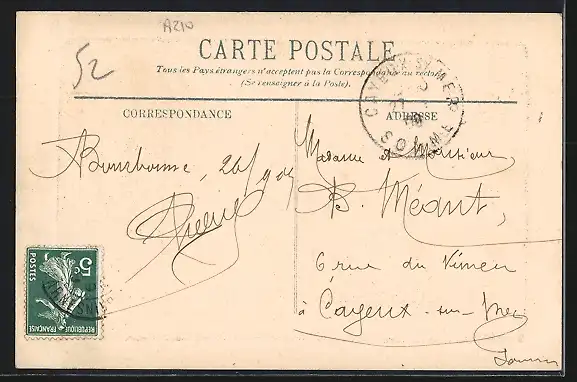 A210
52
CARTE POSTALE
Tous les Pays étrangers n'acceptent pas la Correspondance au recto
(Se renseigner à la Poste).
CORRESPONDANCE
ADRESSE
CAYEUX-S-MER
SOMME
Madame et Monsieur,
B. Méant,
6 rue du Vimeu
à Cayeux-sur-Mer
Somme
5c
POSTES
REPUBLIQUE FRANÇAISE